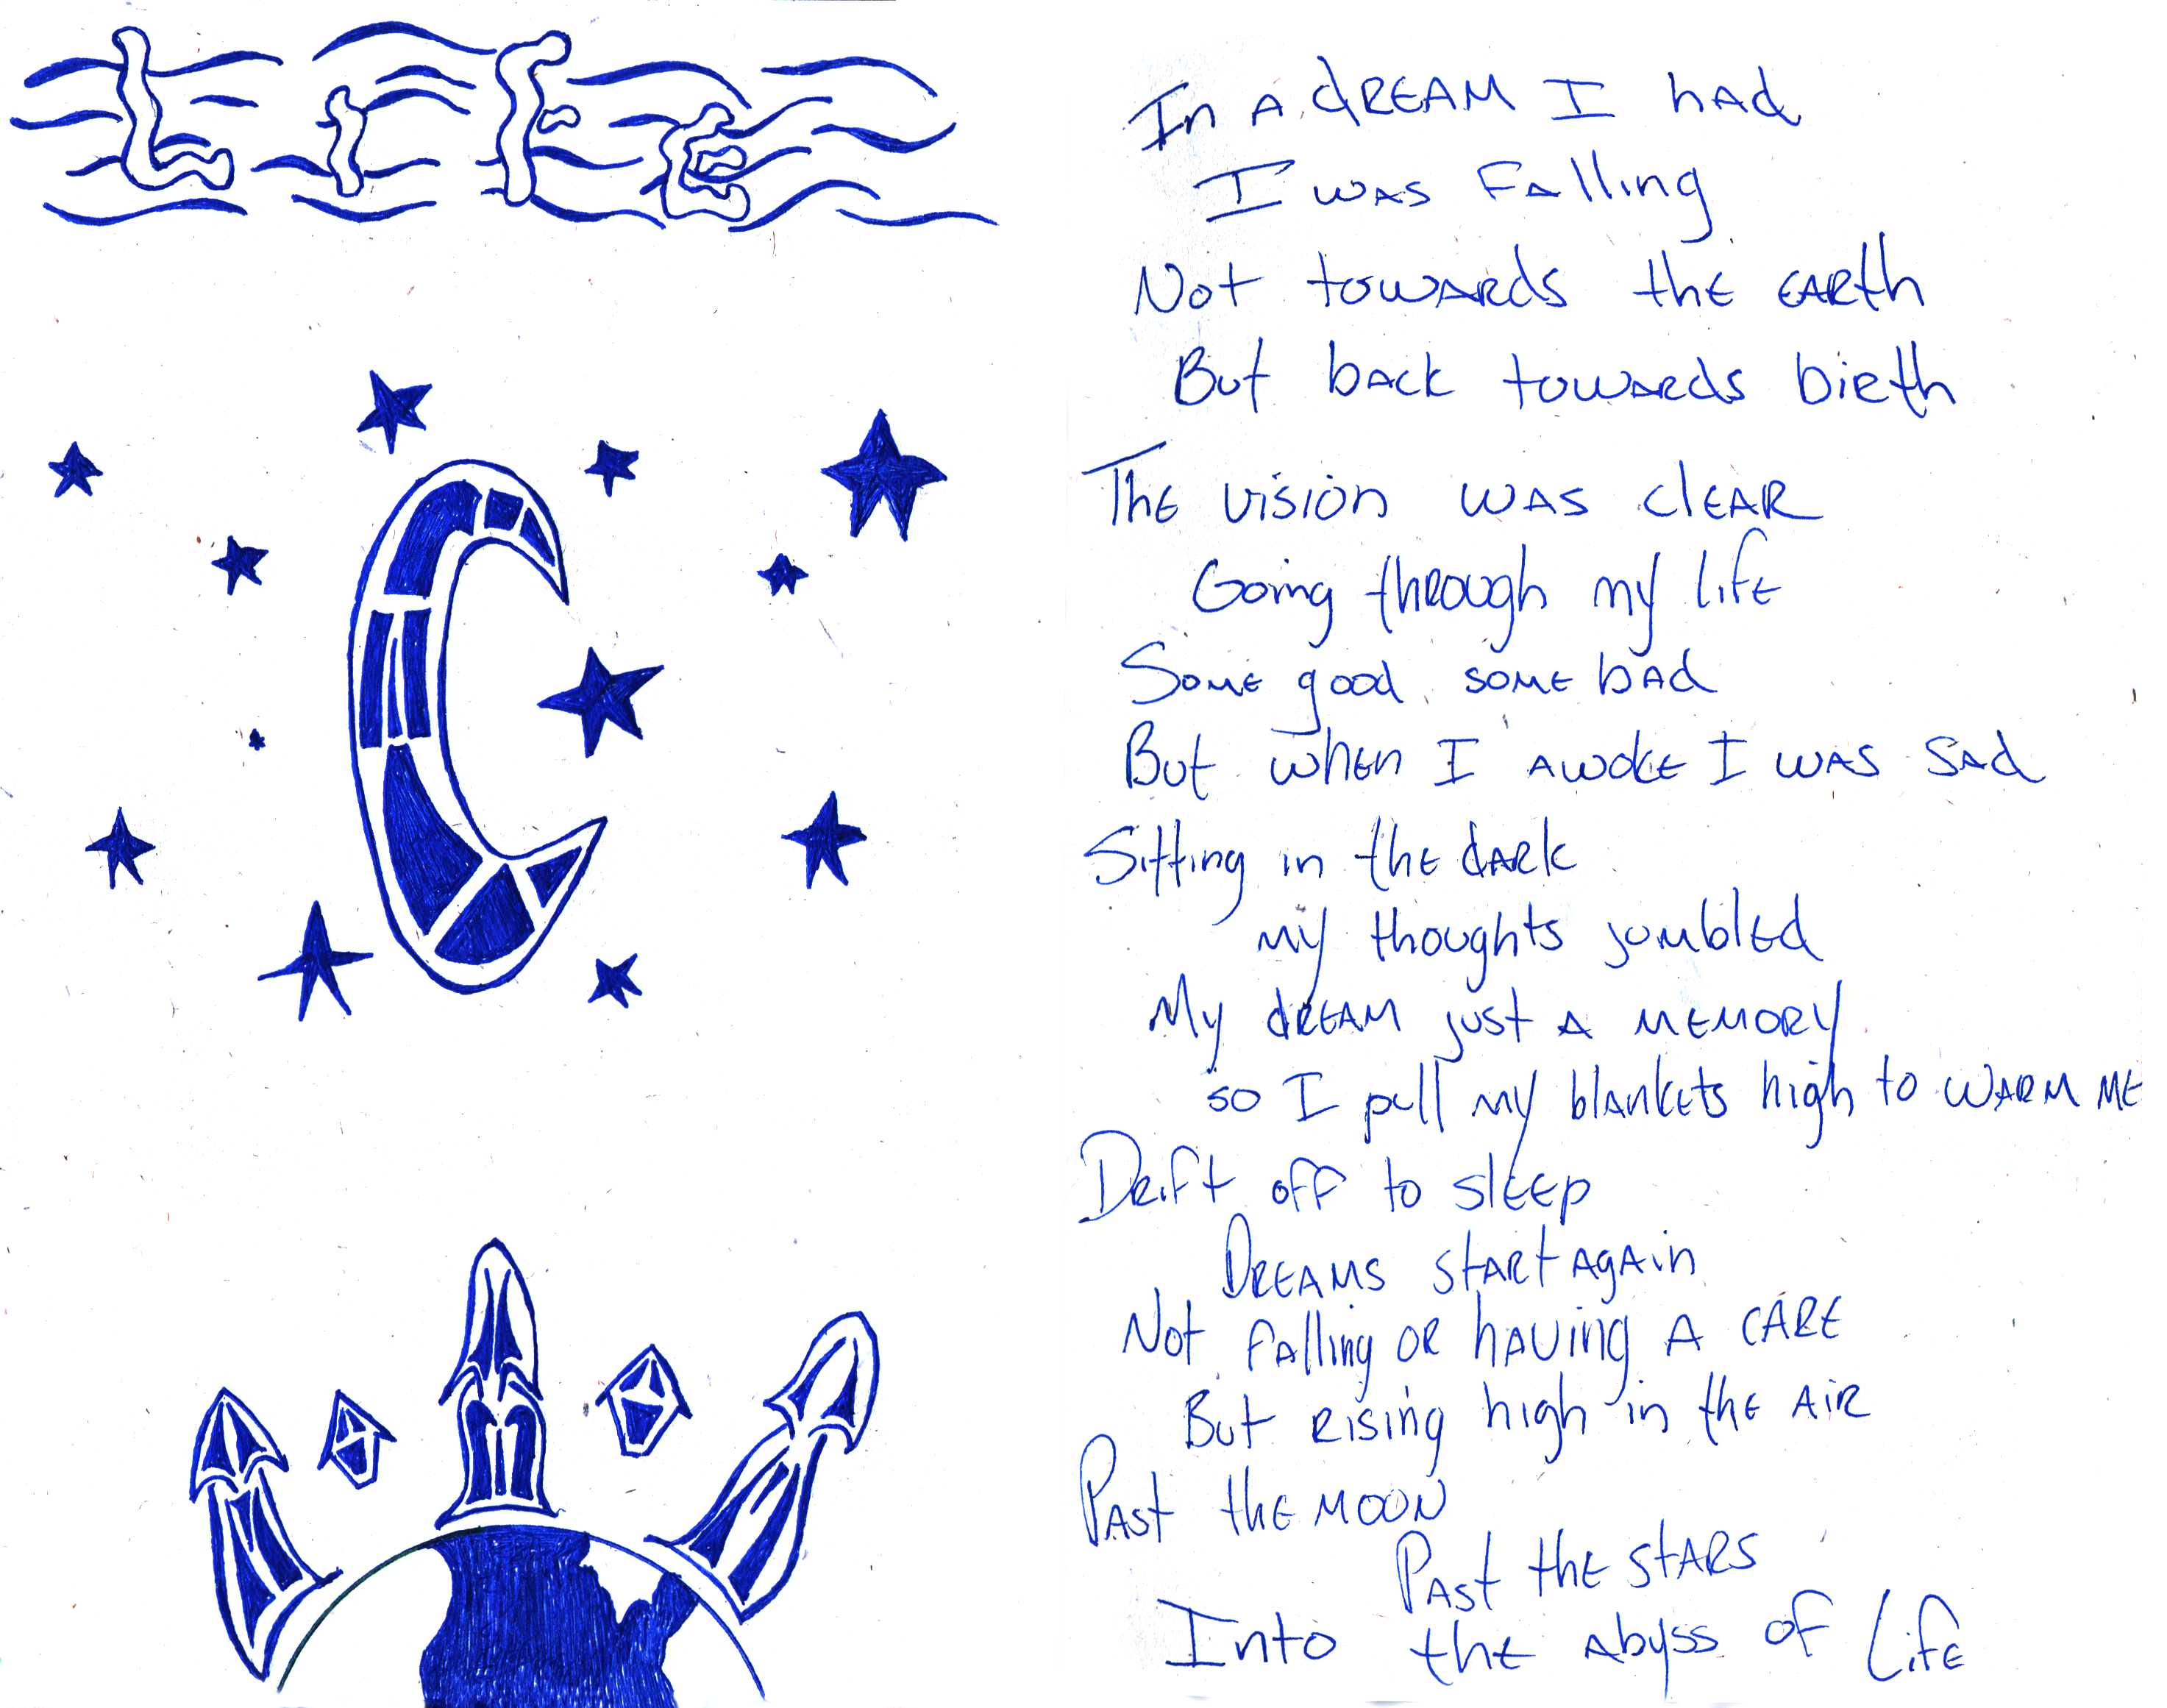 LIFE
In A dREAM I hAd
I wAS FAlling
Not towARds thE EARth
But bAck towARds biRth
ThE vision wAS clEAR
Going thRough my lifE
SomE good somE bAd
But whEn I AwokE I wAS SAd
Sitting in thE dARk
my thoughts jumblEd
My dREAM just A MEMORY
so I pull my blAnkEts high to wARM ME
DRift off to slEEp
DREAMS stARt AgAin
Not fAlling OR hAving A CARE
But Rising high in thE AiR
PAst thE MOON
PAst thE stARS
Into thE Abyss of LifE